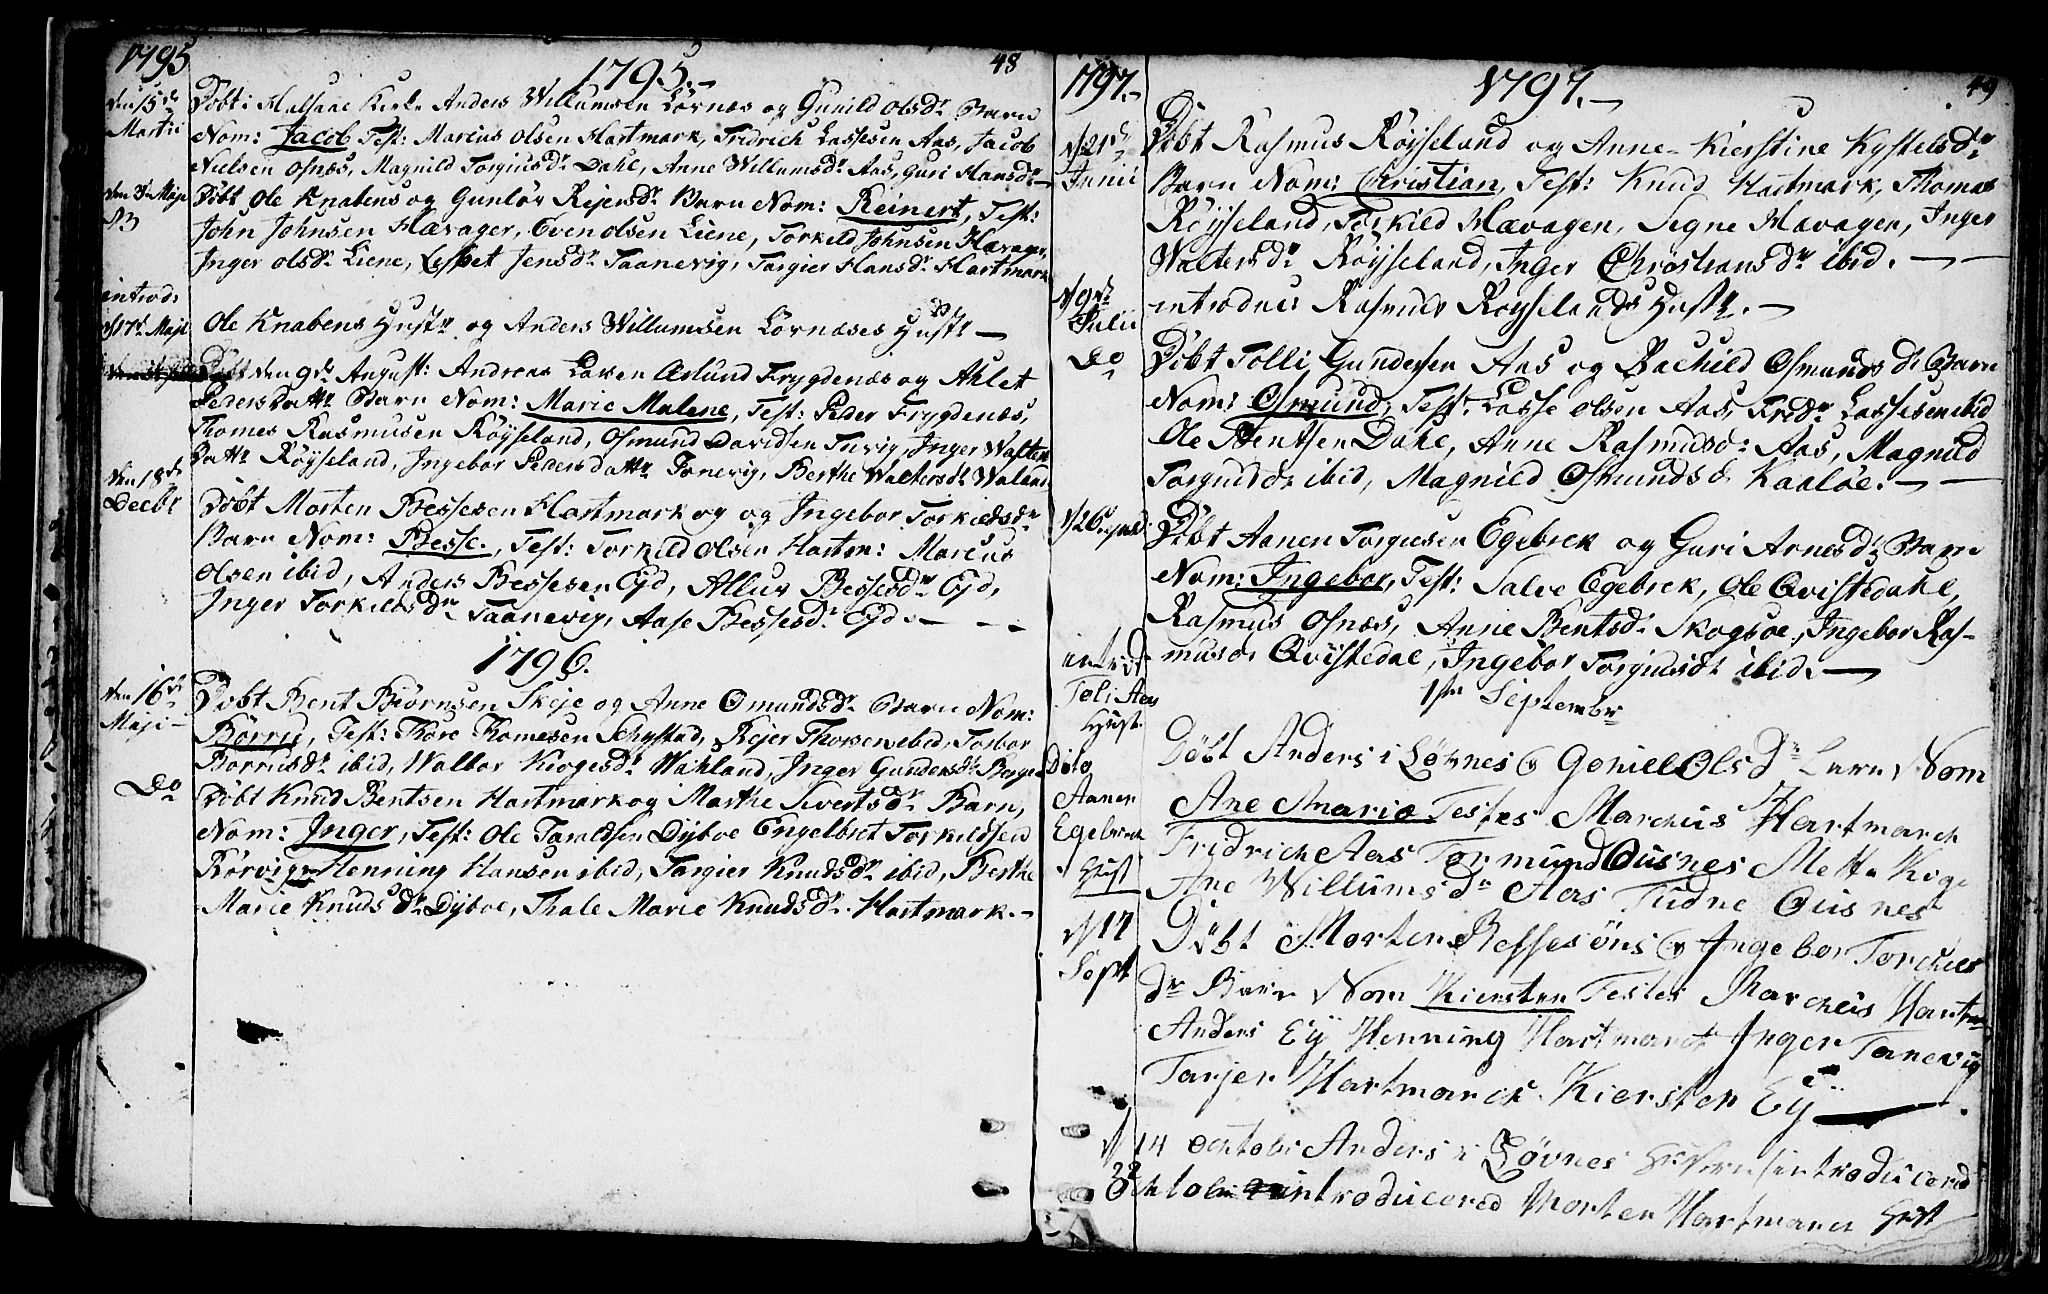 1795
1795.-
48
den 15de Martii
Døbt i Halsaae Kirke Anders Willumsen Lørnæs og Gunild Olsdr Barn
Nom: Jacob Test: Marcus Olsen Hartmark, Fridrich Lassesen Aas, Jacob
Nielsen Osnæs, Magnild Torgiusdr Dahl, Anne Willumsdr Aas, Guri Hansdr
den 3de Maji
Døbt Ole Knabens og Gunlør Rejersdr Barn Nom: Reinert, Test:
John Johnsen Hævager, Even Olsen Liene, Torkild Johnsen Hævager,
Inger Olsdr Liene, Lisbet Jensdr Taanevig, Targier Hansdr Hartmark
introd:
d 17de Maji
Ole Knabens Hustr og Anders Willumsen Lørnæses Hustr —
Døbt den 9de August: Andreas Larsen Aslund Frygdenæs og Ahlet
Pedersdattr Barn Nom: Marie Malene, Test: Peder Frygdenæs,
Thomes Rasmusen Röyseland, Osmund Davidsen Tuvig, Inger Walters
Dattr Röyseland, Ingebor Pedersdattr Tonevig, Berthe Waltersdr Waland
den 18de Decbr
Døbt Morten Bessesen Hartmark og og Ingebor Torkildsdr
Barn Nom: Besse, Test: Torkild Olsen Hartm: Marcus
Olsen ibid, Anders Bessesen Ejd, Allur Bessesdr Ejd,
Inger Torkildsdr Taanevig, Aase Bessesdr Ejd. — - -
1796.
den 16de Maji —
Døbt Bent Biörnsen Skeje og Anne Omundsdr Barn Nom:
Börruj, Test: Thore Thomesen Schystad, Rejer Thorsen ibid, Torbor
Börrusdr ibid, Walbor Kiogesdr Wahland, Inger Gundersdr Borgen
Do
Døbt Knud Bentsen Hartmark og Marthe Sivertsdr Barn,
Nom: Inger, Test: Ole Taraldsen Dyboe Engelbret Torkildsen
Rörvig, Henning Hansen ibid, Targier Knudsdr ibid, Berthe
Marie Knudsdr Dyboe, Thale Marie Knudsdr Hartmark. -
1797.-
1797.-
49
d 21de Junii
Døbt Rasmus Röysseland og Anne Kierstine Kystelsdr
Barn Nom: Christian, Test: Knud Hartmark, Thomas
Röysseland, Torkild Hævagen, Segne Hævagen, Inger
Waltersdr Röysseland, Inger Christiansdr ibid. — —
d 9de Julii
introdu: Rasmus Röysselands Hustr. —
Do
Döbt Tolli Gundersen Aas og Bachild Osmundsdr Barn
Nom: Osmund, Test: Lasse Olsen Aas, Fridr Lassesen ibid
Ole Bentsen Dahl, Anne Rasmusd: Aas, Magnild
Torgiusd: ibid, Magnild Osmundsd Kaalöe. — —
Döbt Aanen Torgiusen Egebrek og Guri Arnesdr Barn
Nom: Ingebor, Test: Salve Egebrek, Ole Qvistedahl,
Rasmus Osnæs, Anne Bentsdr Skogsøe, Ingebor Ras-
musd: Qvistedal, Ingebor Torgiusdr ibid. —
introd
Toli Aas
Hust.
Dito
Aanen
Egebreck
Hust
1ste Septembr
Døbt Anders i Løvnes & Goniel Ols Dr barn Nom
Ane Maria Testes Marchus Hartmarck
Fridrich Aas Tormund Ousnes Metta Koge
Ane Willums Dr Aas Tudne Ousnes
d 17 Sept
Døbt Morten Bessesöns & Ingebor Torchels
dr Barn Nom Kiersten Testes Marcheis Hartm
Anders Eij Henning Hartmarck Inger Tanevig
Tarjer Hartmarck Kiersten Eij —.
d 14 Octobr Anders i Løvnes introducered
22 Octobr introducered Morten Hartmarck Hust